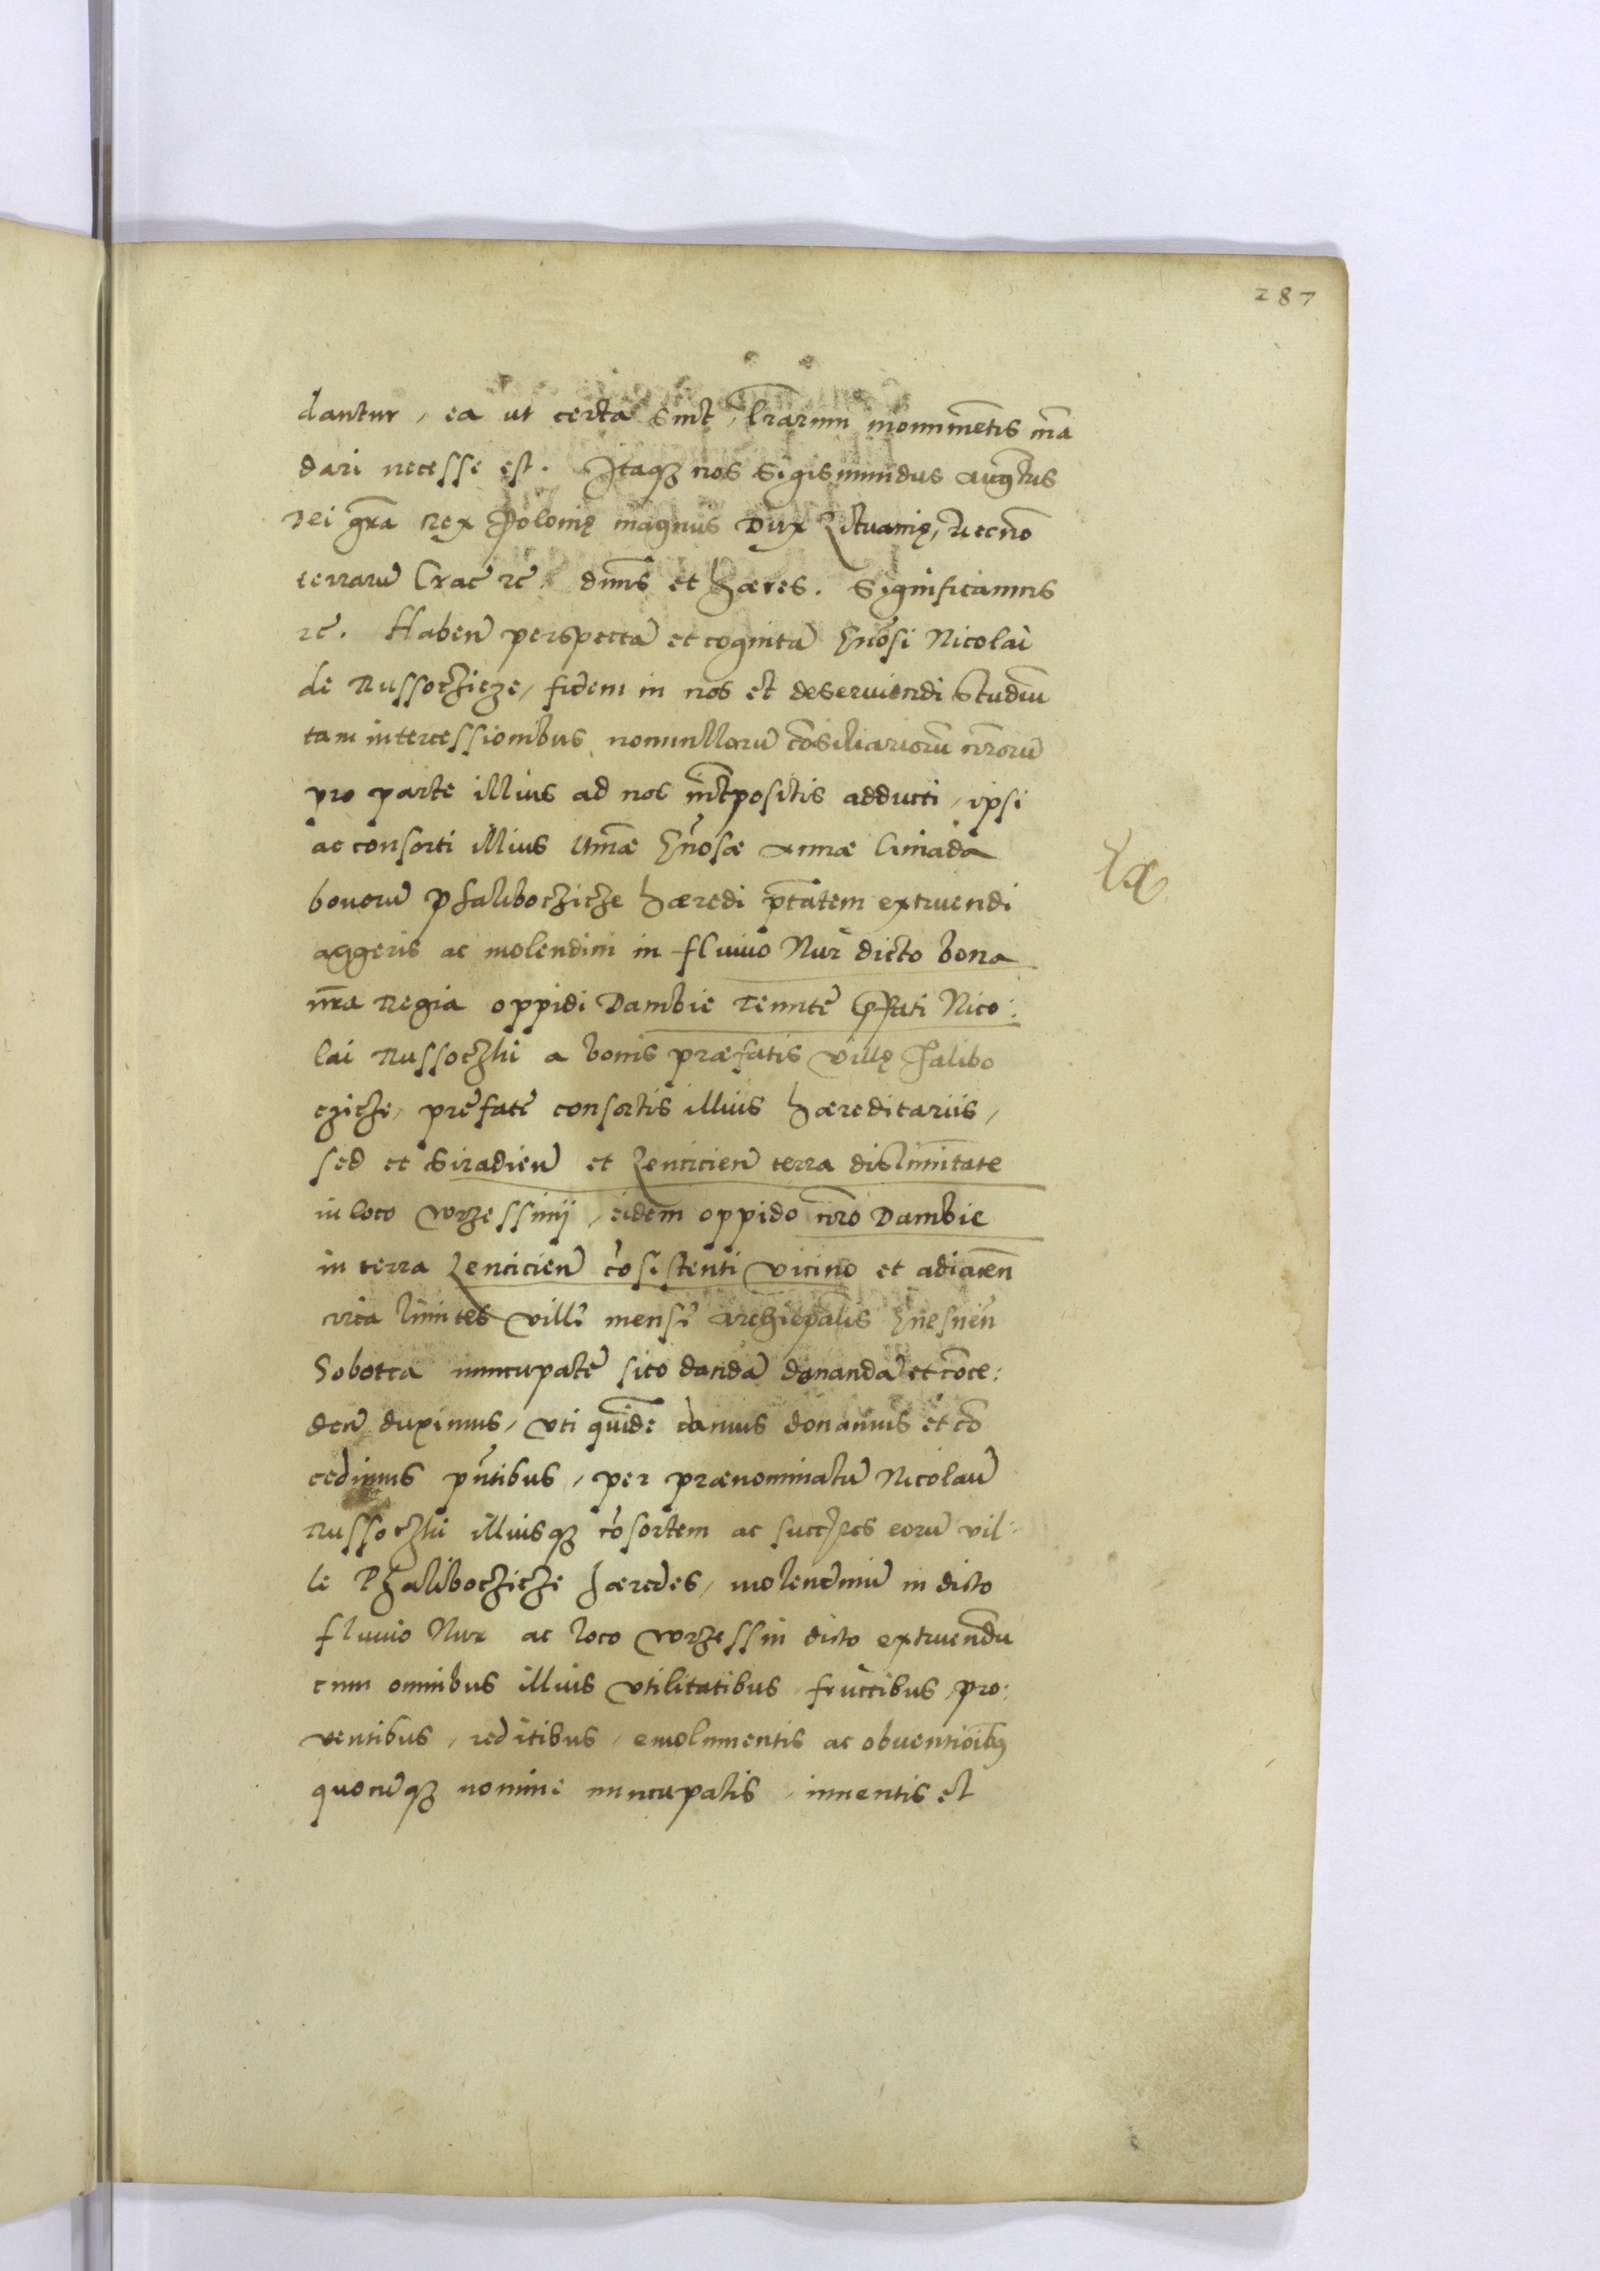 287
dantur, ea ut certa sint, lrarum monumetis ma
dari necesse est. Itaq nos Sigismundus Augtus
Dei gra Rex Polonię magnus Dux Lituanię, Necno
terraru Crac rc. dnus et hæres. Significamus
rc. Haben perspecta et cognita Gnosi Nicolai
de Russocziċze, fidem in nos et deserviendi studiu
tam intercessionibus nonnulloru cosiliarioru nroru
pro parte illius ad nos intpositis adducti, ipsi
ac consorti illius Gnosæ Annæ
bonoru Phalibocziche hæredi ptatem extruendi
aggeris ac molendini in fluvio Nur dicto bona
nra Regia oppidi Dambie Pfati Nico:
lai Russoczki a bonis præfatis villę Phalibo
cziche, prefate consortis illius hæreditariis,
sed et Siradien et Lencicien terra dislimitate
in loco Worzessinij, eidem oppido nro Dambie
in terra Lencicien cosistenti vicino et adiacen
circa limites ville mense Archiepalis Gnesnen
Sobotca nuncupate sito danda donanda et conce:
den duximus, Uti quide damus donamus et co
cedimus pntibus, per prænominatu Nicolau
Russoczki illiusq cosortem ac succres eoru vil:
le Phalibocziche hæredes, molendinu in dicto
fluvio Nur ac loco Worzessin dicto extruendu
cum omnibus illius utilitatibus fructibus, pro:
ventibus, reditibus, emolumentis ac obventioibus
quocuq nomine nuncupatis, inventis et